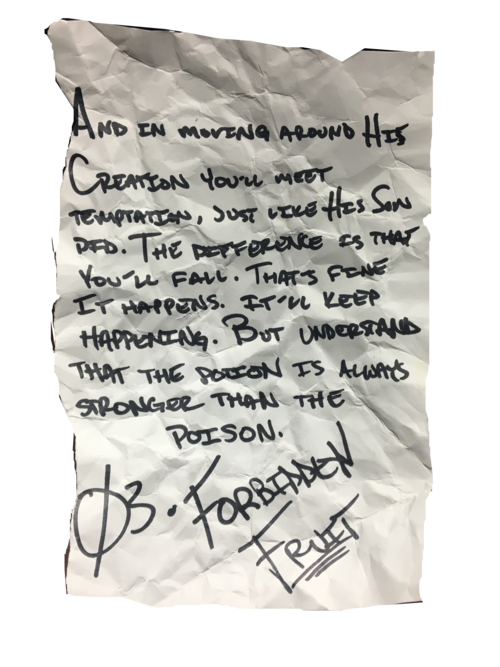 AND IN MOVING AROUND HIS
CREATION YOU'LL MEET
TEMPTATION, JUST LIKE HIS SON
DID. THE DIFFERENCE IS THAT
YOU'LL FALL. THAT'S FINE
IT HAPPENS. IT'LL KEEP
HAPPENING. BUT UNDERSTAND
THAT THE POTION IS ALWAYS
STRONGER THAN THE
POISON.
Ø3. FORBIDDEN
FRUIT